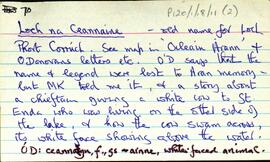 70 P120/1/8/11 (2)
Loch na Ceannaine - old name for Loch
Phort Corrúch. See map in 'Oileáin Árann', &
O'Donovans letters etc. O'D says that the
name & legend were lost to Aran memory -
but MK told me it, & a story about
a chieftain giving a white cow to St
Enda who was living on the side of
the lake, & how the cow swam across,
its white face showing above the water.
OD: ceannaynn, f, gs ~ ainne, white-faced animal.